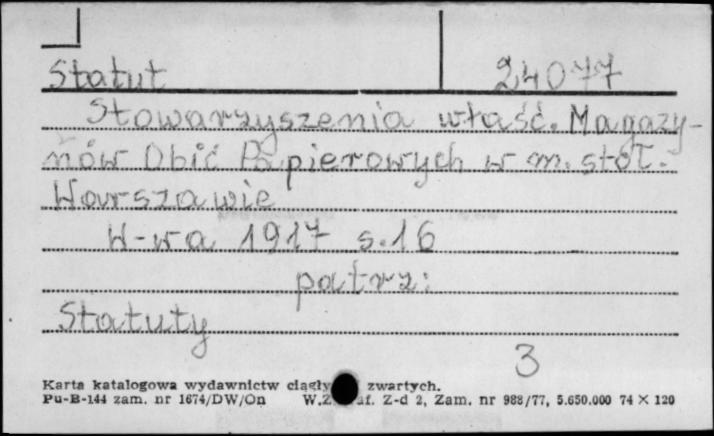 Statut 24077
Stowarzyszenia właść. Magazy-
nów Obić Papierowych w m. stoł.
Warszawie
W-wa 1917 s.16
patrz:
Statuty
3
Karta katalogowa wydawnictw ciągły zwartych.
Pu-B-144 zam. nr 1674/DW/On W.Z. af. Z-d 2, Zam. nr 988/77, 5.650.000 74 × 120